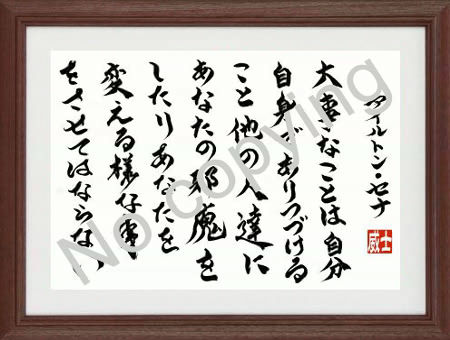 アイルトン・セナ
大事なことは自分
自身でありつづける
こと他の人達に
あなたの邪魔を
したりあなたを
変える様な事
をさせてはならない
威士
No copying